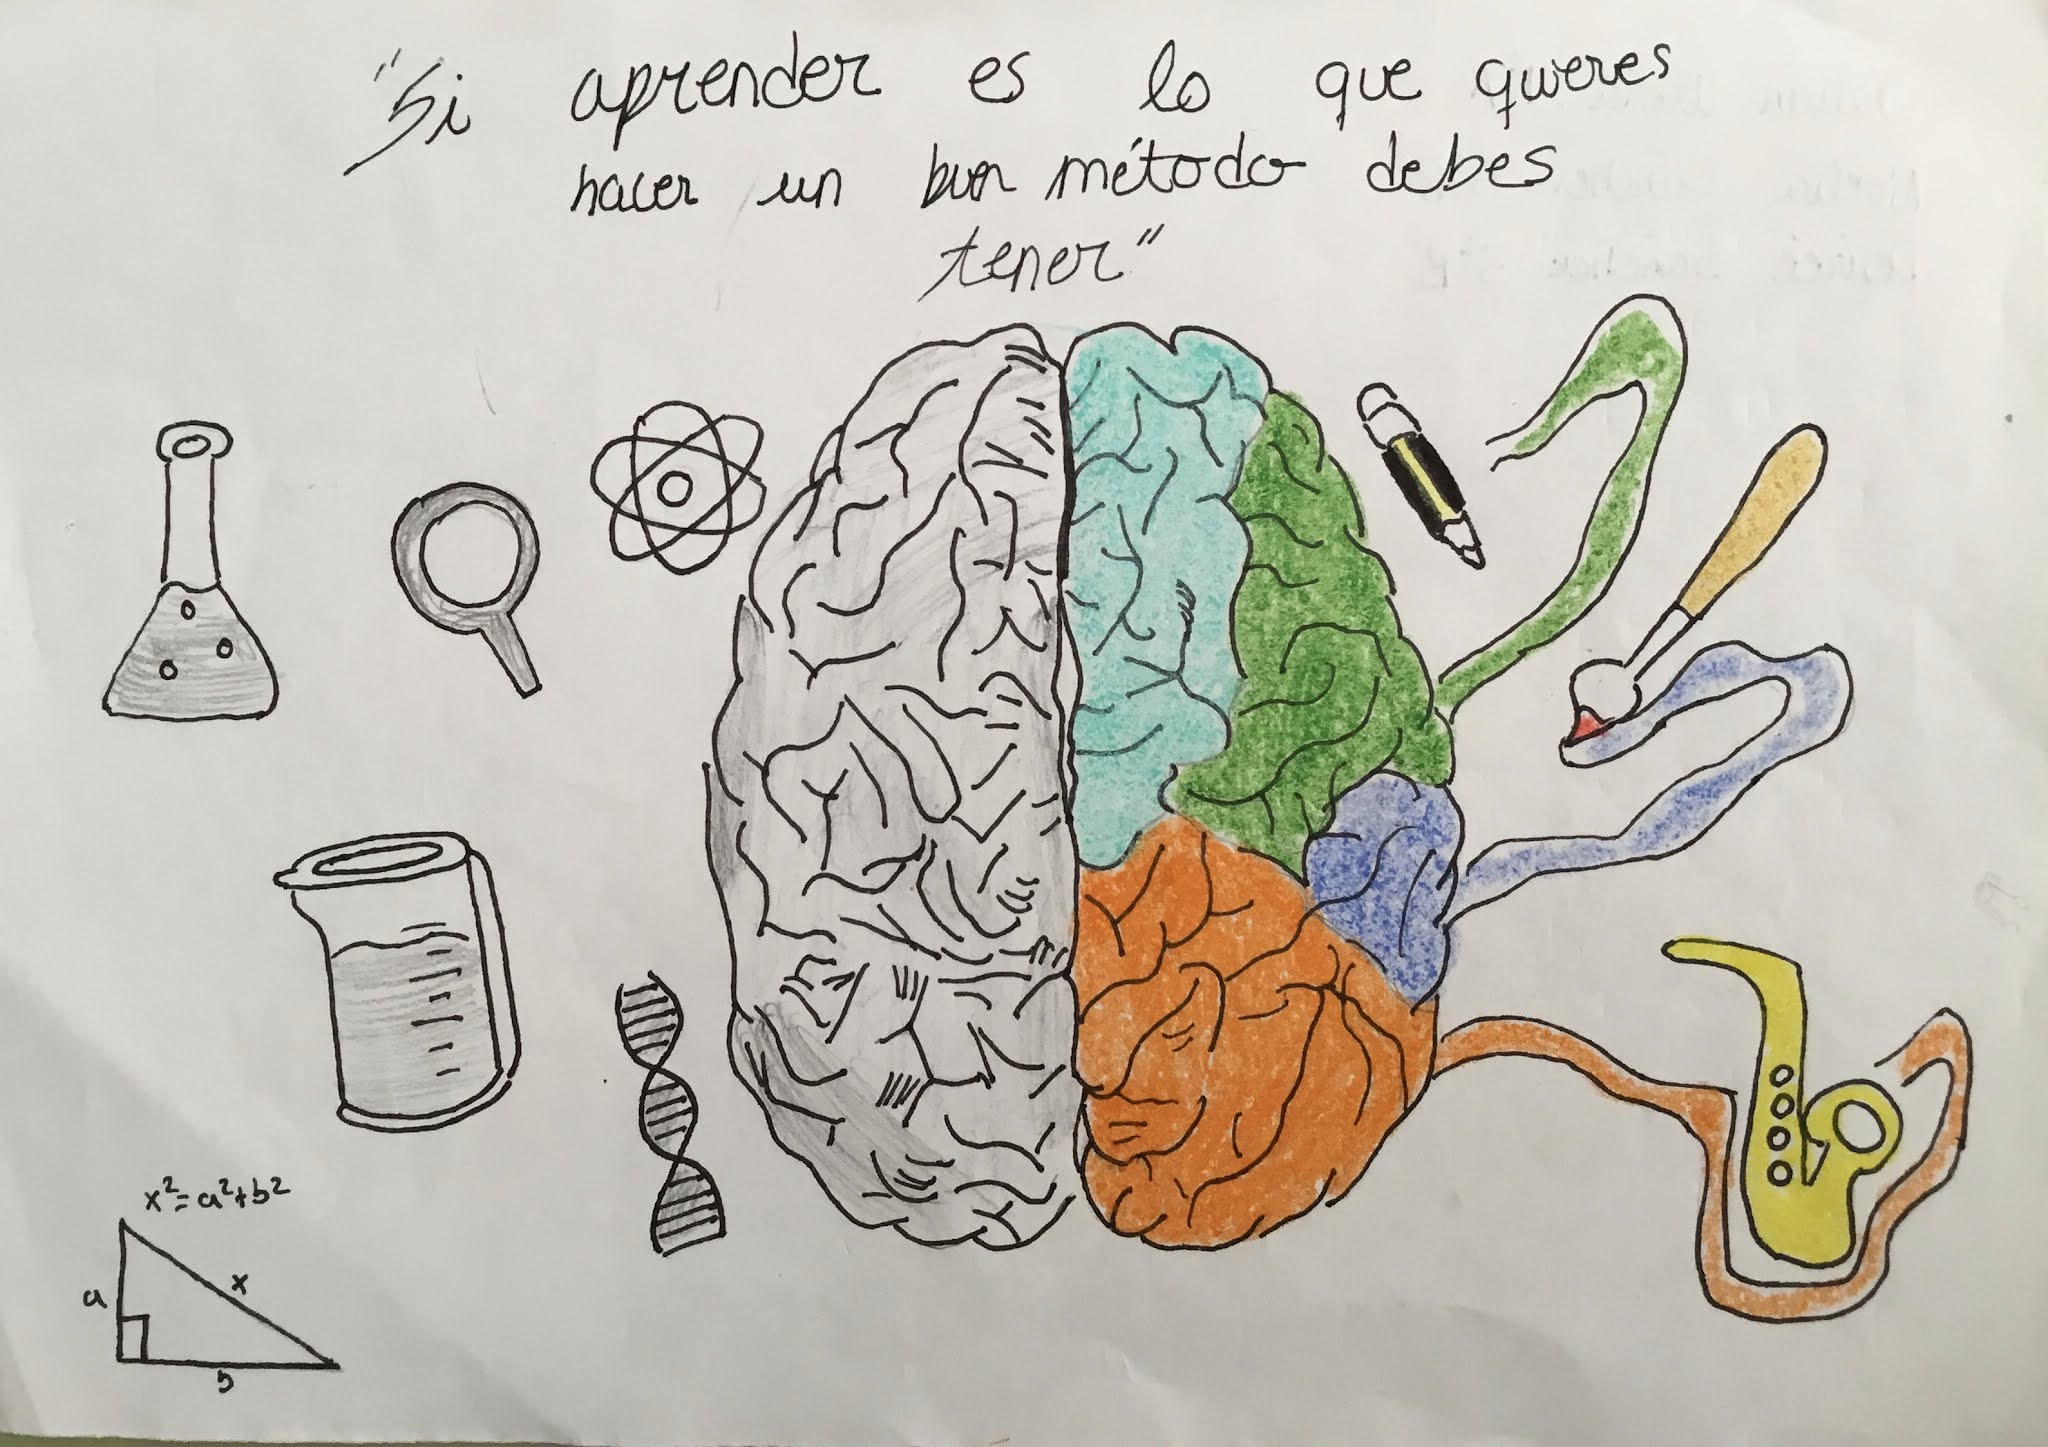 "Si aprender es lo que quieres
hacer un buen método debes
tener"
x²=a²+b²
a
x
b